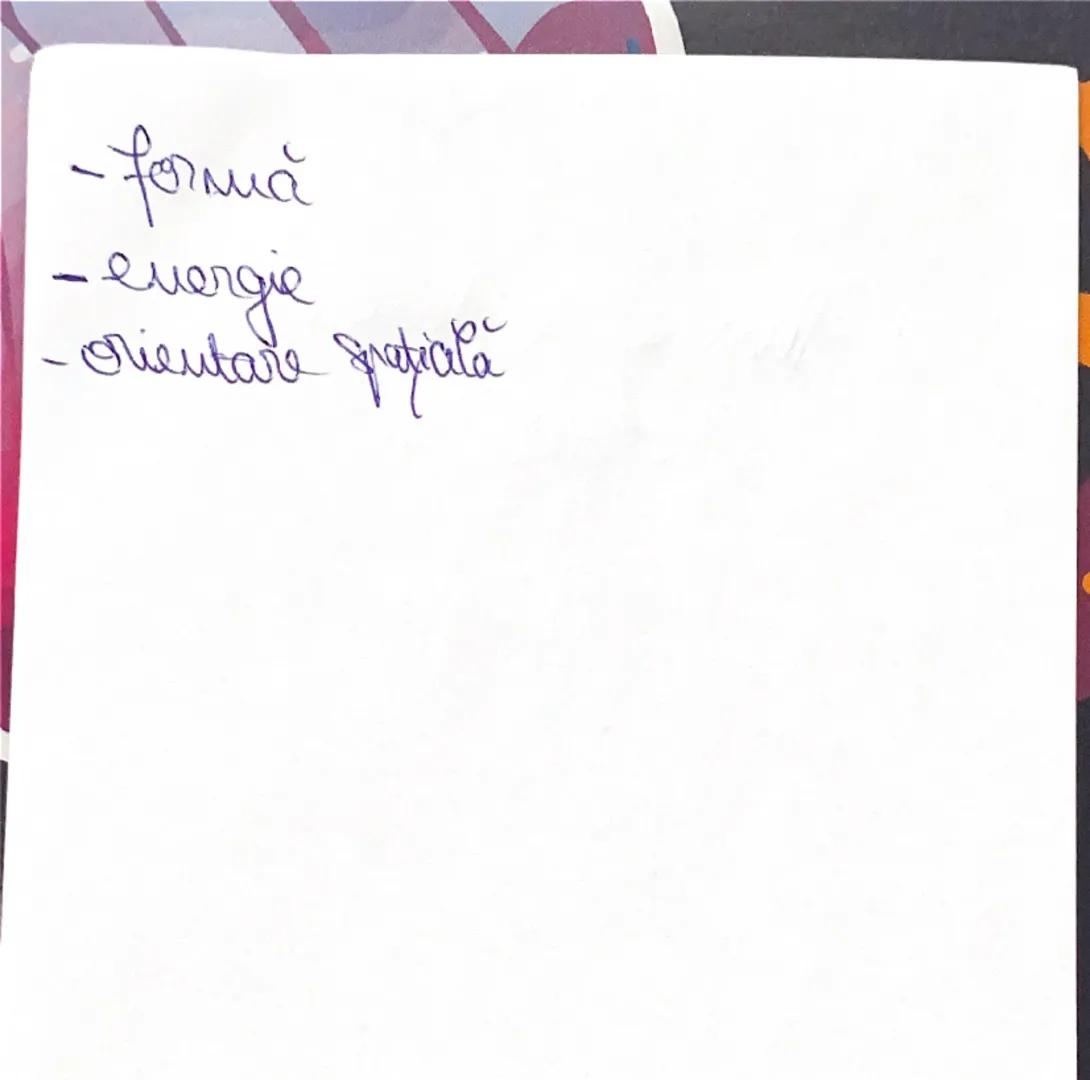 - formă
- energie
- orientare spațială